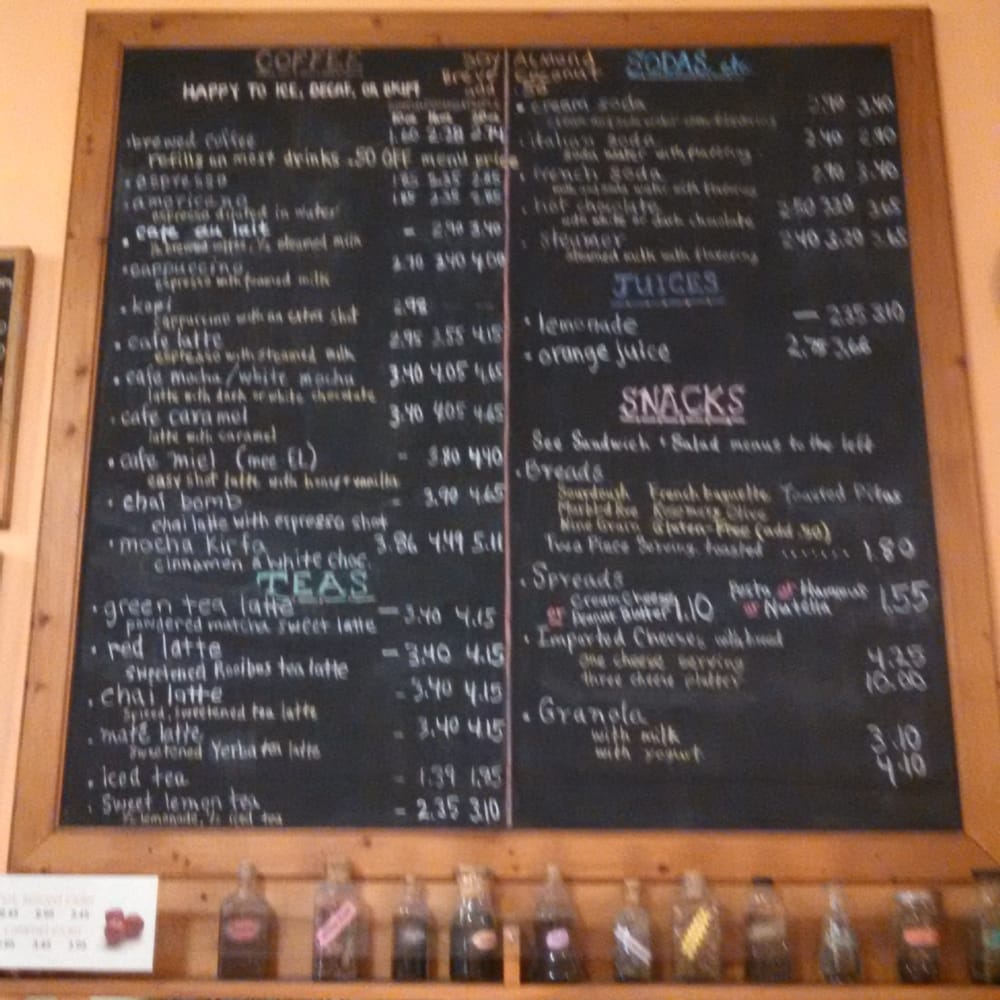 COFFEE
HAPPY TO ICE, DECAF, OR SKIM
Soy
Breve
add
Almond
Coconut
.50
brewed coffee 1.60 2.28 2.74
refills on most drinks .50 OFF menu price
espresso 1.85 2.35 2.85
americano 1.85 2.35 2.85
espresso diluted in water
cafe au lait - 2.90 3.40
½ brewed coffee, ½ steamed milk
cappuccino 2.70 3.40 4.00
espresso with foamed milk
kopi 2.98
cappuccino with an extra shot
cafe latte 2.95 3.55 4.15
espresso with steamed milk
cafe mocha/white mocha 3.40 4.05 4.65
latte with dark or white chocolate
cafe caramel 3.40 4.05 4.65
latte with caramel
cafe miel (mee EL) - 3.80 4.40
easy shot latte with honey + vanilla
chai bomb - 3.90 4.65
chai latte with espresso shot
mocha kirfa 3.86 4.49 5.11
cinnamon & white choc.
TEAS
green tea latte - 3.40 4.15
powdered matcha sweet latte
red latte - 3.40 4.15
sweetened Rooibos tea latte
chai latte - 3.40 4.15
spiced, sweetened tea latte
maté latte - 3.40 4.15
sweetened Yerba tea latte
iced tea - 1.39 1.85
sweet lemon tea - 2.35 3.10
½ lemonade, ½ iced tea
SODAS etc
cream soda 2.90 3.40
italian soda 2.40 2.90
soda water with flavoring
french soda 2.90 3.40
hot chocolate 2.50 3.20 3.65
with white or dark chocolate
steamer 2.40 3.20 3.65
steamed milk with flavoring
JUICES
lemonade - 2.35 3.10
orange juice 2.78 3.66
SNACKS
See Sandwich + Salad menus to the left
Breads
Sourdough French baguette Toasted Pitas
Marbled Rye Rosemary Olive
Nine Grain Gluten-Free (add .50)
Two Piece Serving, toasted ....... 1.80
Spreads
Cream Cheese
or Peanut Butter 1.10
Pesto or Hummus
or Nutella 1.55
Imported Cheeses, with bread
one cheese serving 4.25
three cheese platter 10.00
Granola
with milk 3.10
with yogurt 4.10